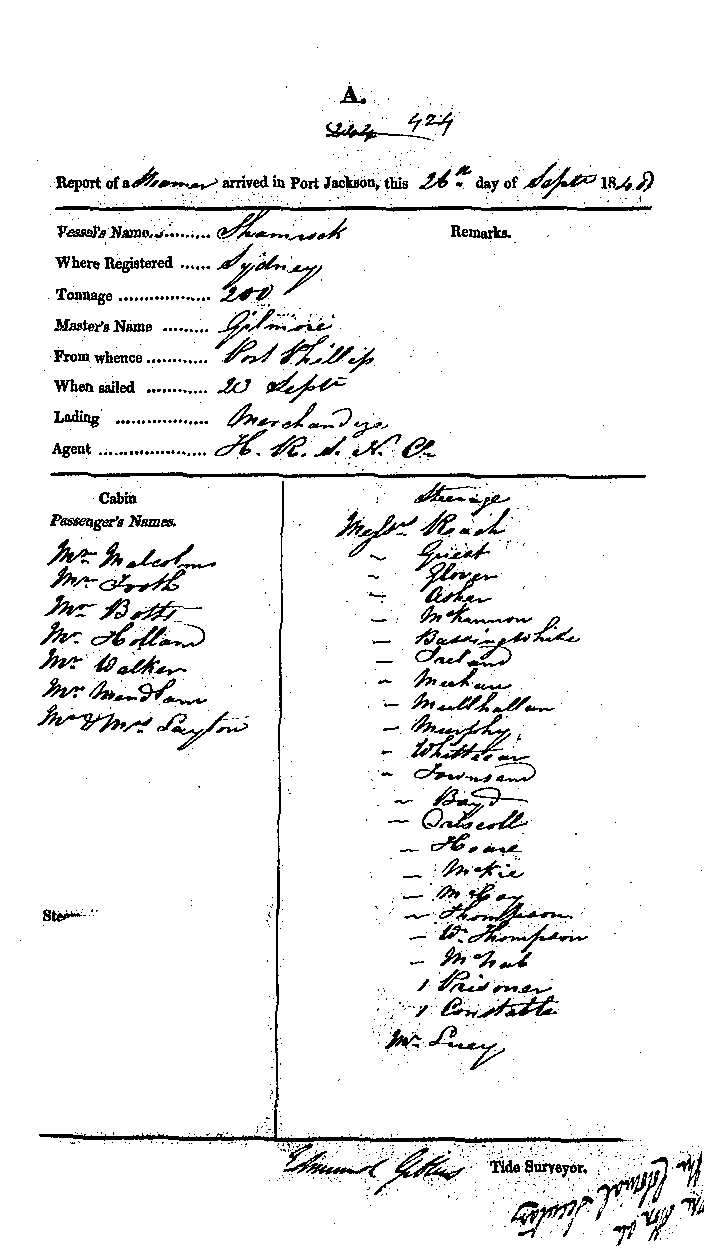 A.
424
Report of a Steamer arrived in Port Jackson, this 26th day of Septr 1848
Vessel's Name........... Shamrock
Remarks.
Where Registered ...... Sydney
Tonnage .................. 200
Master's Name ......... Gilmore
From whence ............ Port Phillip
When sailed ............ 20 Septr
Lading .................. Merchandize
Agent ..................... H. R. S. N. Co
Cabin
Passenger's Names.
Mr Malcolm
Mr Tooth
Mr Botts
Mr Holland
Mr Walker
Mr Mendham
Mr & Mrs Layton
Stee
Steerage
Messrs Roach
" Guest
" Glover
" Asher
" McKinnon
" Bassingwhite
" Ireland
" Meehan
" Mullhallan
" Murphy
" Whittaear
" Townsend
" Boyd
" Driscoll
" Hoare
" McKie
" McCay
" Thompson
" W. Thompson
" McNab
1 Prisoner
1 Constable
Mr Lucy
Edmund Tide Surveyor.
The Hon the
Colonial Secretary